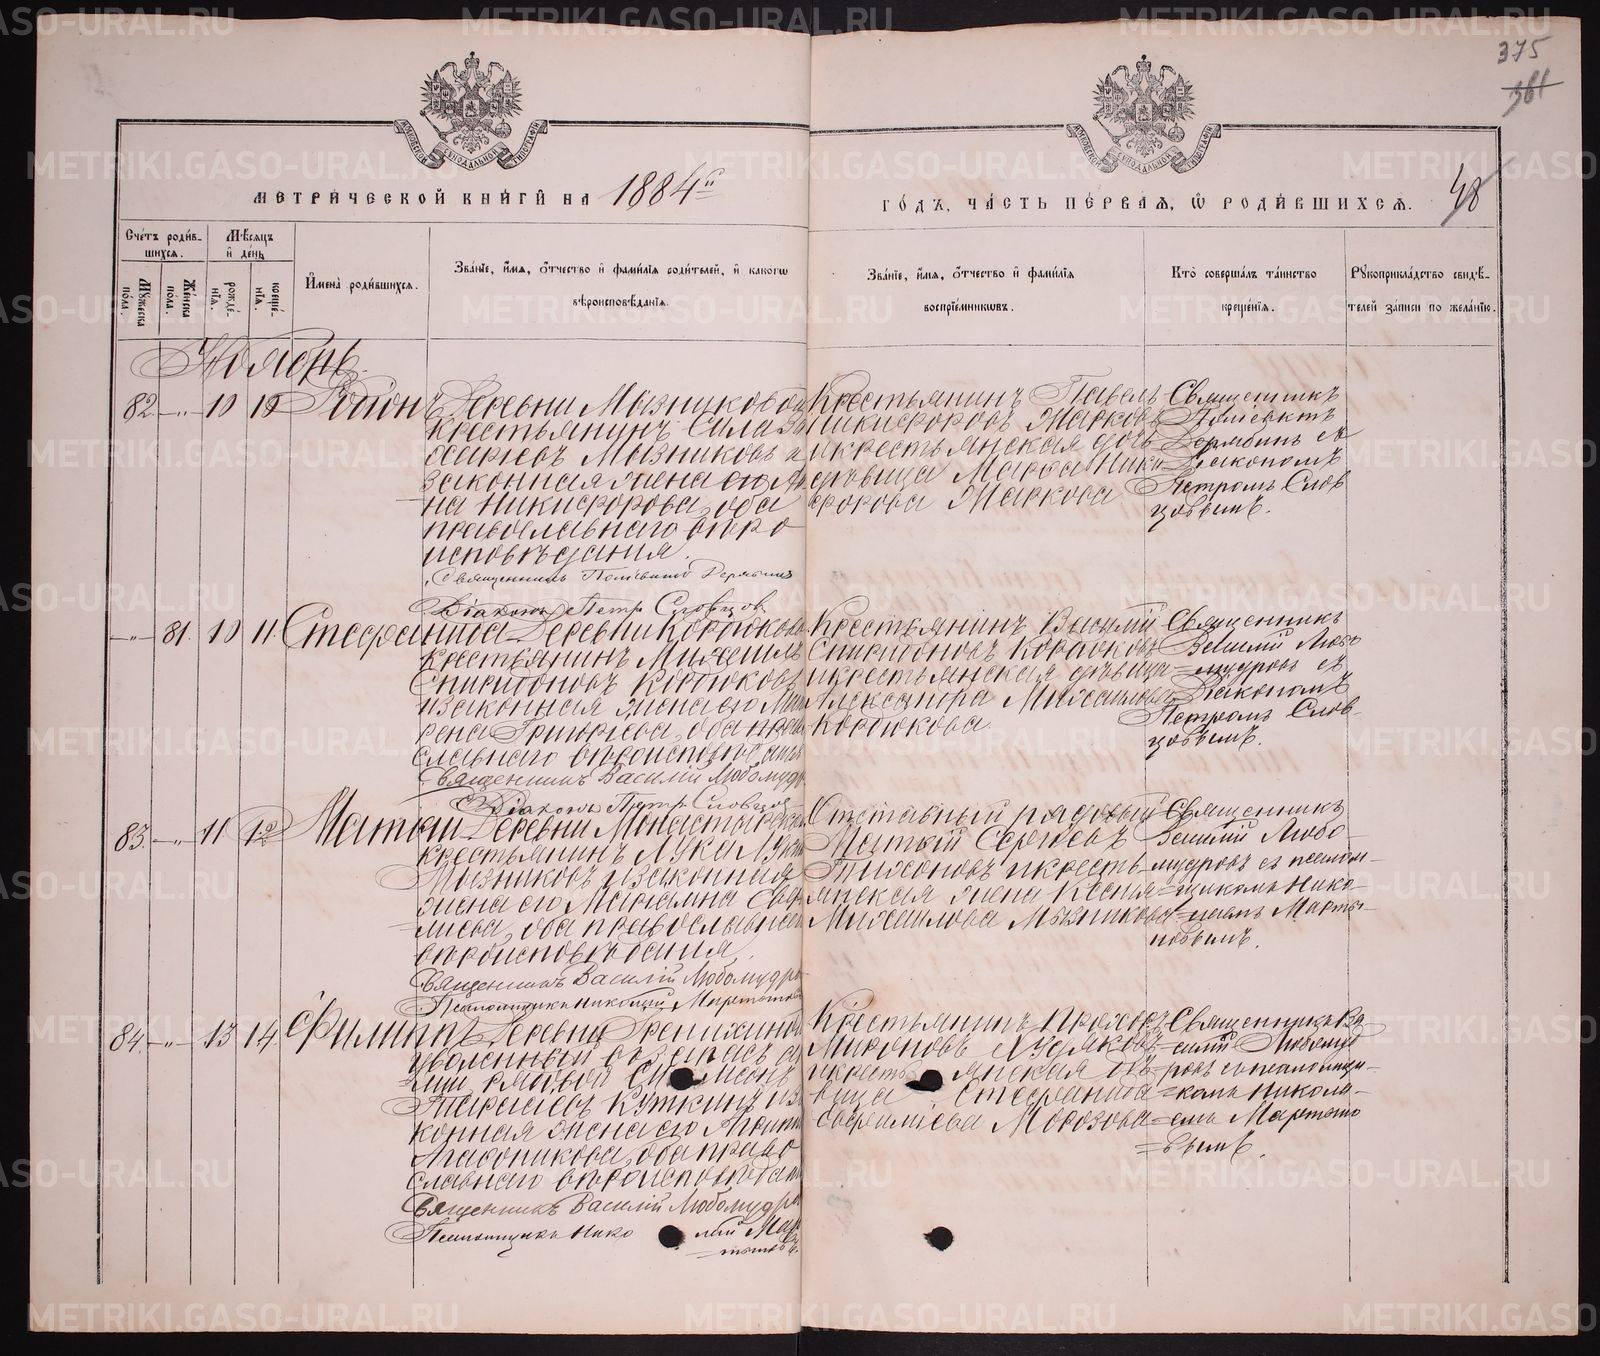 375
361
МЕТРИЧЕСКОЙ КНИГИ НА 1884й
ГОДЪ, ЧАСТЬ ПЕРВАЯ, Ѡ РОДИВШИХСЯ.
48
Счетъ родившихся.
Мужеска пола.
Женска пола.
Мѣсяцъ и день
рожденія.
крещенія.
Имена родившихся.
Званіе, имя, отчество и фамилія родителей, и какого
вѣроисповѣданія.
Званіе, имя, отчество и фамилія
воспріемниковъ.
Кто совершалъ таинство
крещенія.
Рукоприкладство свидѣ-
телей записи по желанію.
Ноябрь.
82. „ 10 12 Родіонъ
Деревни Мызниковой
крестьянинъ Сила
Мызниковъ и
законная жена его
на Никифорова, оба
православнаго вѣро
исповѣданія.
Священникъ Поліевктъ Дерябинъ
Діаконъ Петръ Словцовъ
Крестьянинъ Павелъ
Никифоровъ Жарковъ
и крестьянская дочь
дѣвица Марѳа Ники
форова Жаркова
Священникъ
Поліевктъ
Дерябинъ съ
Діакономъ
Петромъ Слов
цовымъ.
„ 81. 10 11. Стефанида
Деревни Кортюкова
крестьянинъ Михаилъ
Спиридоновъ Кортюковъ
и законная жена его Ма
рена Григорьева, оба право
славнаго вѣроисповѣданія
Священникъ Василій Любомудр
Діаконъ Петръ Словцов
Крестьянинъ Василій
Спиридоновъ Кортюковъ
и крестьянская дѣвица
Александра Михаилова
Кортюкова.
Священникъ
Василій Любо
мудровъ съ
Діакономъ
Петромъ Слов-
цовымъ.
83. „ 11 12 Матѳій
Деревни Монастырской
крестьянинъ Лука Лукинъ
Мызниковъ и законная
жена его Маріамна
оба православнаго
вѣроисповѣданія
Священникъ Василій Любомудр
Псаломщикъ Николай Мартынов
Отставный рядовый
Матѳій Сергѣевъ
Тихоновъ и кресть
янская жена Ксенія
Михаилова Мызникова
Священникъ
Василій Любо-
мудровъ съ псалом-
щикомъ Нико-
лаемъ Марты-
новымъ.
84. „ 13 14. Филиппъ
Деревни
уволенный въ запасъ ар
міи рядовой Симеонъ
Тарасіевъ Куткинъ и за
конная жена его
оба право
славнаго вѣроисповѣдан
Священникъ Василій Любомудр
Псаломщикъ Нико лай Мар
тынов
Крестьянинъ Прохоръ
Мироновъ
и кресть янская дѣ-
вица Стефанида
Евфиміева Морозова
Священникъ Ва-
силій Любомуд
ровъ съ псаломщи-
комъ Никола-
емъ Мартыно
вымъ.